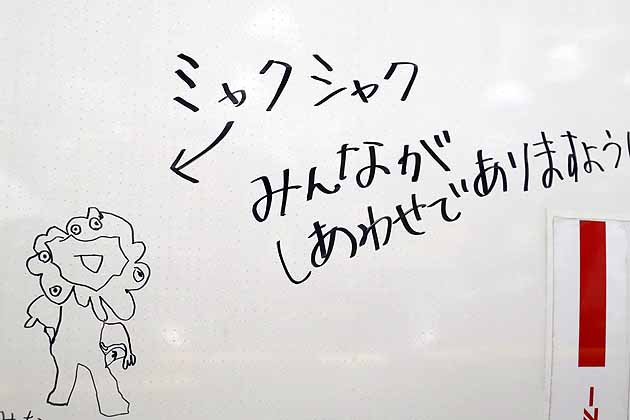 ミャクシャク
みんなが
しあわせでありますよう